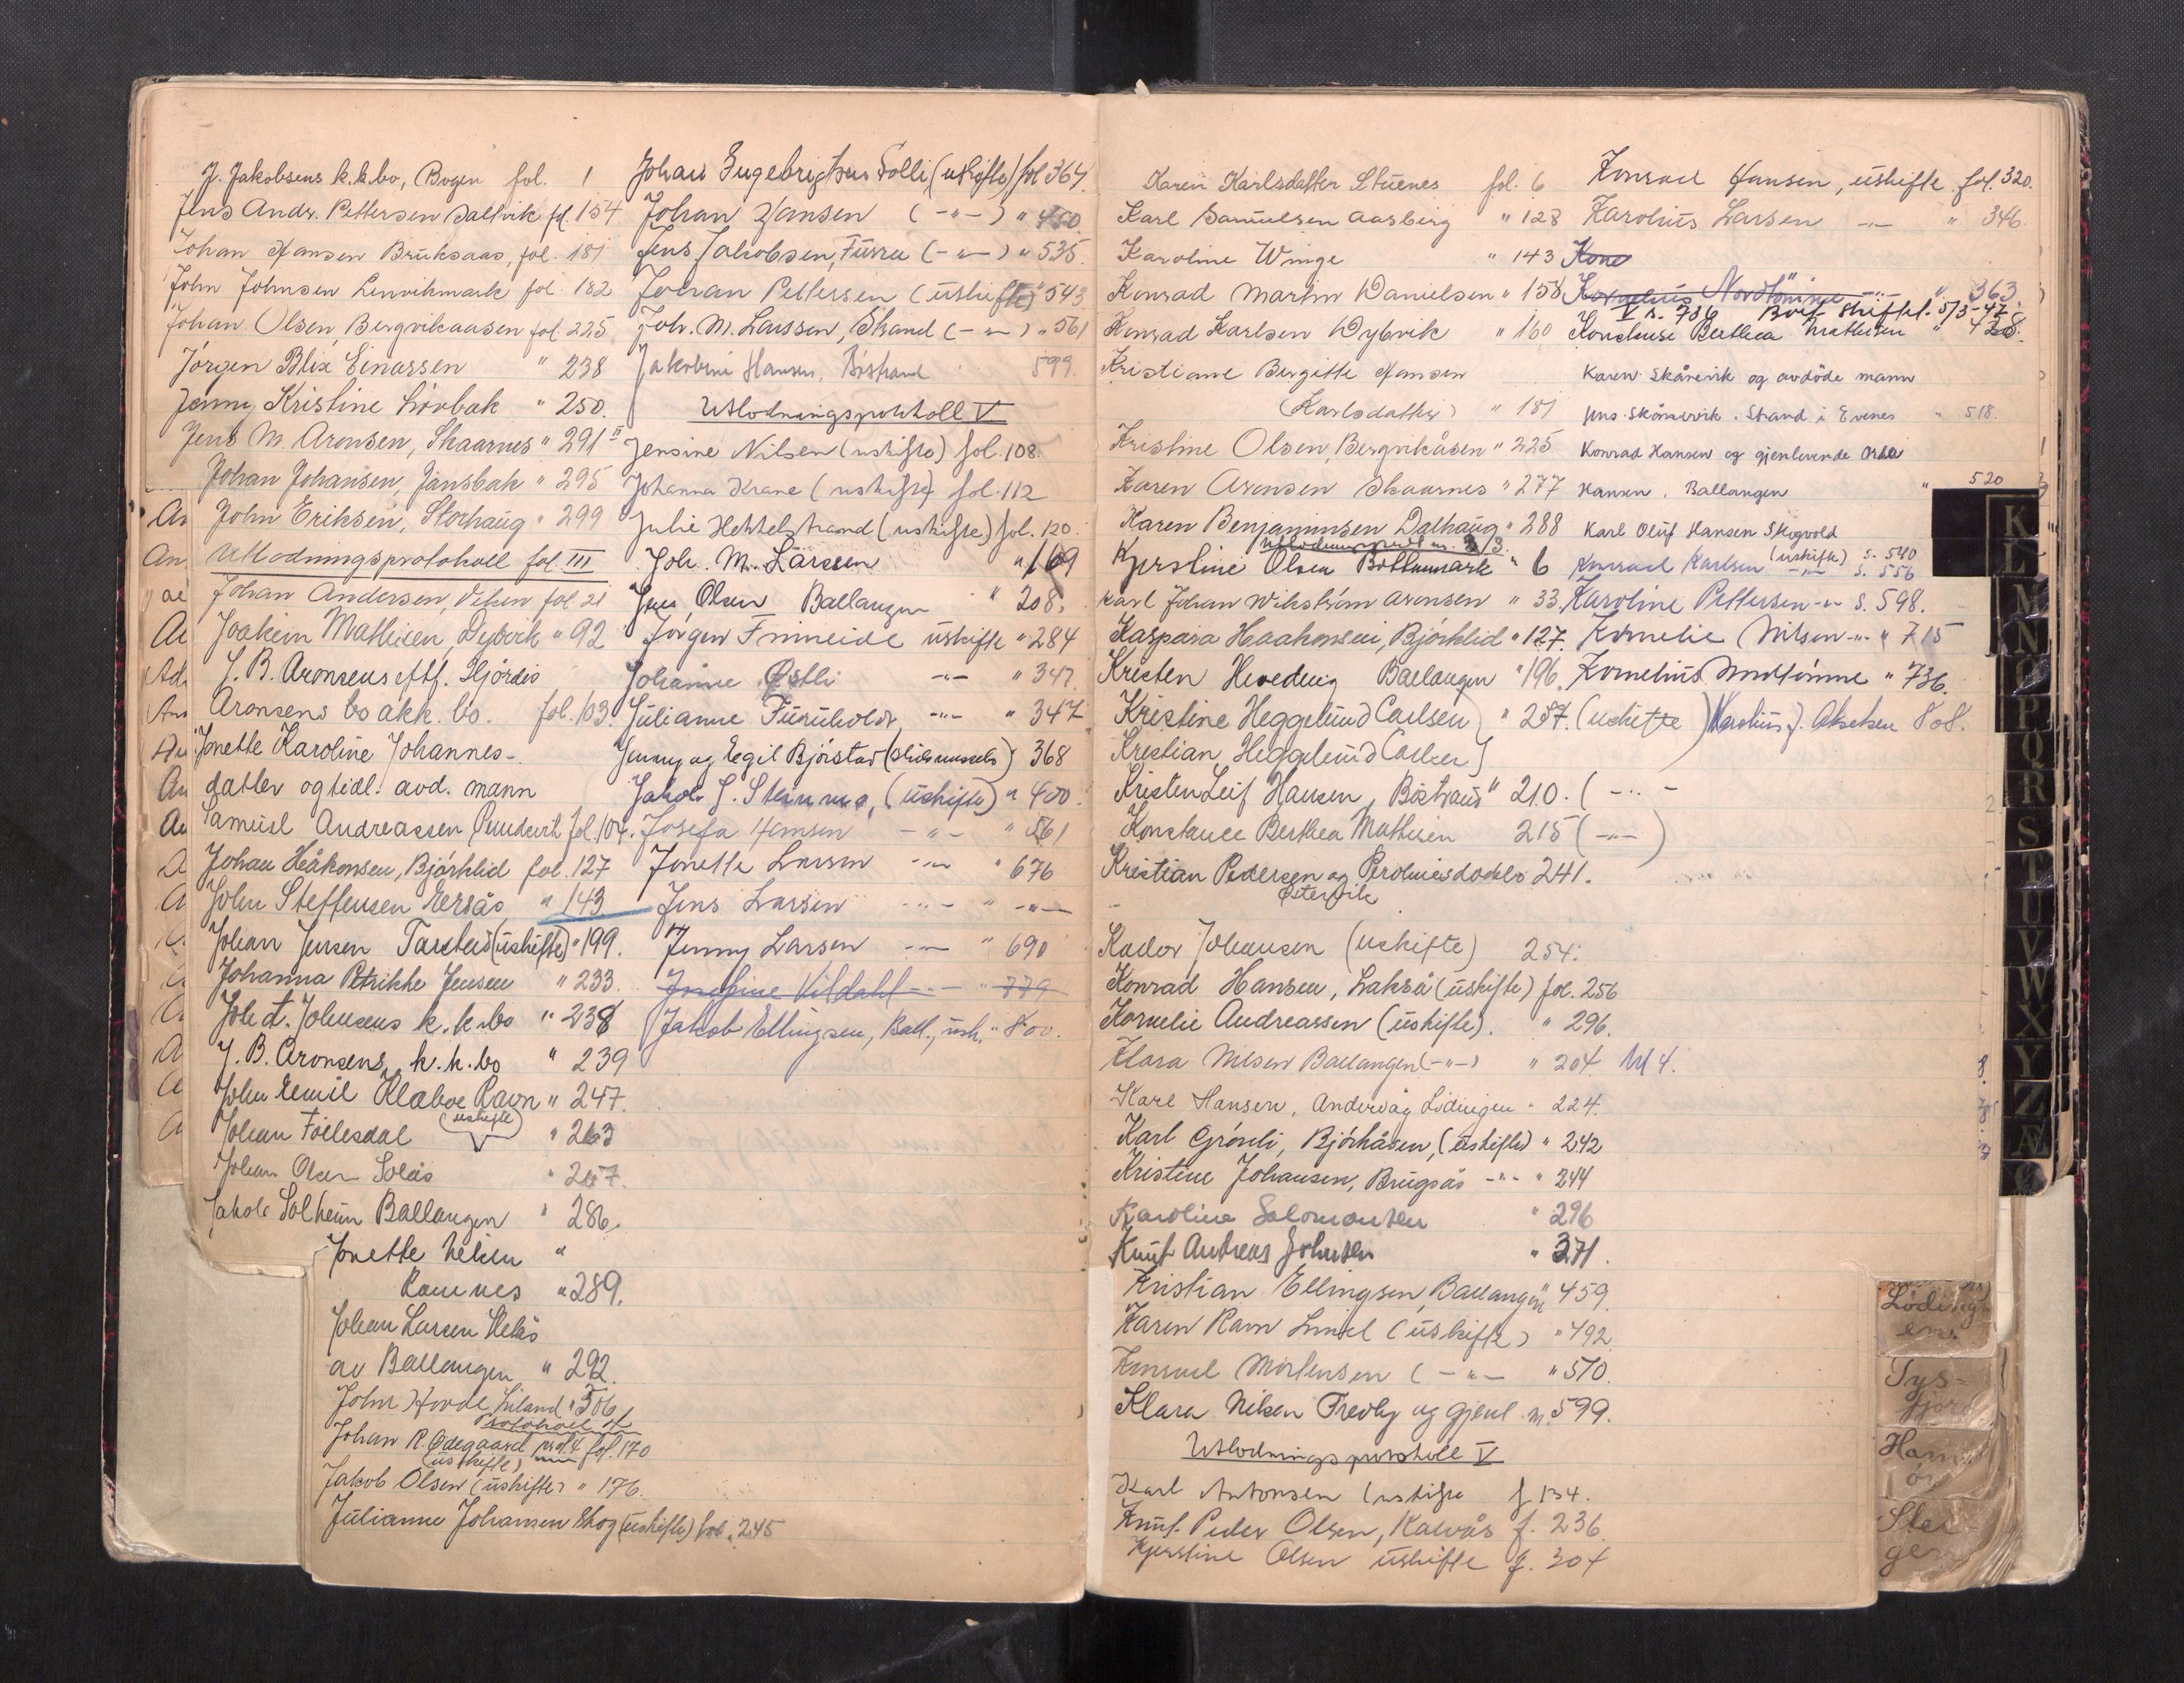 J. Jakobsens k.k.bo, Bogen fol. 1
Jens Andr. Pettersen Saltvik fol. 154
Johan Hansen Bruksaas, fol. 181
John Johnsen Lenvikmark fol. 182
Johan Olsen, Bergvikaasen fol. 225
Jörgen Blix Einarsen " 238
Jenny Kristine Lövbak " 250.
Jens M. Aronsen, Skaarnes " 291 II
Johan Johansen, Jansbak " 295
John Eriksen, Storhaug " 299
Utlodningsprotokoll fol. III
Johan Andersen, fol 21
Joakim Mathisen, Dybvik " 92
J. B. Aronsens eftf. Hjördis
Aronsens bo akk. bo. fol. 103.
Jonette Karoline Johannes-
datter og tidl. avd. mann
Samuel Andreassen fol. 104.
Johan Håkonsen, Bjørklid fol. 127
John Steffensen " 143
Johan Jensen Tarstad (uskifte) " 199.
Johanna Petrikke Jensen " 233.
Joh d. Johnsens k.k.bo " 238
J. B. Aronsens k.k.bo " 239
John Emil Klaboe Ravn " 247.
Johan Föllesdal (uskifte) " 263
Johan Olsen Solås " 267.
Jakob Solheim Ballangen " 286.
Jonette Nilsen "
Ramnes " 289.
Johan Larsen
av Ballangen " 292.
John Hovde Liland " 306
Protokoll 4
Johan R. Ødegaard prot. 4 fol. 170
(uskifte)
Jakob Olsen (uskifte) " 176.
Julianne Johansen Skog (uskifte) fol. 245
Johan Ingebrigtsen Solli (uskifte) fol 364.
Johan Hansen ( -"- ) " 450.
Jens Jakobsen, Furru ( -"- ) " 535.
Johan Pettersen (uskifte) " 543
Joh. M. Larssen, Strand ( -"- ) " 561
Jakobine Hansen, Bøstrand 599.
Utlodningsprotokoll V
Jensine Nilsen (uskifte) fol. 108.
Johanna Krane (uskifte) fol. 112
Julie Hekkelstrand (uskifte) fol. 120.
Joh. M. Larssen " 169
Jens Olsen Ballangen " 208.
Jörgen Finneide uskifte " 284
Johanne Østli -"- " 347.
Julianne Furuholdt, -"- " 347
Jenny og Egil Bjørstad 368
Jakob J. Steinnes, (uskifte) " 400.
Josefa Hansen -"- " 561
Jonette Larsen -"- " 676
Jens Larsen -"- " -"-
Jenny Larsen -"- " 690
Josefine Vildahl -"- " 779
Jakob Ellingsen, Ball., usk. " 800.
Karen Karlsdatter Stuenes fol. 6
Karl Samuelsen Aasberg " 128
Karoline Winge " 143
Konrad Martin Danielsen " 158
Konrad Karlsen Dybvik " 160
Kristiane Bergitte Hansen
(Karlsdatter) " 181
Kristine Olsen, Bergvikåsen " 225
Karen Aronsen Skaarnes " 277
Karen Benjaminsen Dalhaug " 288
Utlodningsprot. n. 3.
Kjerstine Olsen Bottenmark " 6
Karl Johan Wikström Aronsen " 33.
Kaspara Haakonsen, Bjørklid " 127.
Kristen Hveding Ballangen " 196.
Kristine Heggelund Carlsen " 287. (uskifte)
Kristian Heggelund Carlsen
Kristen Leif Hansen, Bøstrand " 210. ( -"-
Konstance Berthea Mathisen 215 ( -"- )
Kristian Pedersen og 241.
Østervik
Kador Johansen (uskifte) 254.
Konrad Hansen, Lakså (uskifte) fol. 256
Kornelie Andreassen (uskifte). " 296.
Klara Nilsen Ballangen ( -"- ) " 204
Karl Hansen, Andervåg Lødingen " 224.
Karl Grönli, Bjørkåsen, (uskifte) " 242
Kristine Johansen, Brugsås -"- " 244
Karoline Salomonsen " 296
Knut Andreas Johnsen " 371.
Kristian Ellingsen Ballangen " 459.
Karen Ravn Lund (uskifte) " 492
Konrad Mortensen ( -"- " 570.
Klara Nilsen Fredly og gjenl. m. 599.
Utlodningsprotokoll V
Karl Antonsen (uskifte f. 134.
Knut Peder Olsen, Kalvås f. 236.
Kjerstine Olsen uskifte f. 304
Konrad Hansen, uskifte fol. 320.
Karolius Larsen -"- " 346.
Kons
Kornelius -"- " 363.
V s. 736 Bort skiftet. 5/3-47.
Konstanse Berthea Mathisen " 428.
Karen Skårvik og avdöde mann
Jens Skårvik. Strand i Evenes " 518.
Konrad Hansen og gjenlevende Orda
Hansen. Ballangen " 520
Karl Oluf Hansen Skogvold
(uskifte) s. 540
Konrad Karlsen -"- s. 556
Karoline Pettersen -"- s. 598.
Kornelie Nilsen -"- " 715
Kornelius " 736.
Karolius J. Akselsen 808.
K
L
M
N
O
P
Q
R
S
T
U
V
W
X
Y
Z
Æ
Ø
Löding-
en
Tys-
fjord
Ham
ör
Stei-
gen